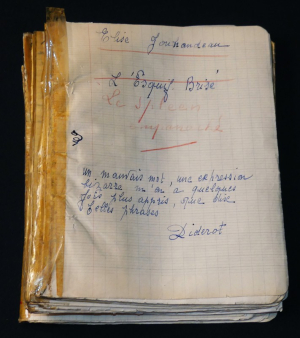 Elise Jouhandeau
L'Esquif Brisé
Le Spleen
empanaché
un mauvais mot, une expression
bizarre m'en a quelques
fois plus appris, que dix
belles phrases
Diderot